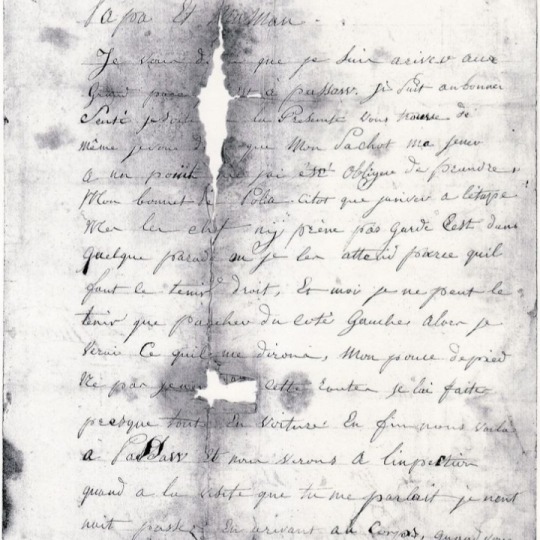 Papa Et Maman
Je vous di que je suis ariver aux
Grand à passaw. je suit anbonner
Senté je la Presente vous trouve de
même je vous di que Mon Sachot ma jener
a un point que jai été Obligée de prendre
Mon bonnet de Polia citot que jariver a létape
Mes les chef nÿ préne pas garde Cest dans
quelque parade ou je les attend parce quil
faut le tenir droit, Et moi je ne peut le
tenir que pancher du coté Gauche, Alors je
verai Ce quil me dirons, Mon pouce de pied
Ne pas jener cette routes je lai faite
presque tout En voiture En fin nous voila
a Passaw Et nous verons a linpection
quand a la visite que tu me parlait je nent
nuit pas En arivant au Corps, quand